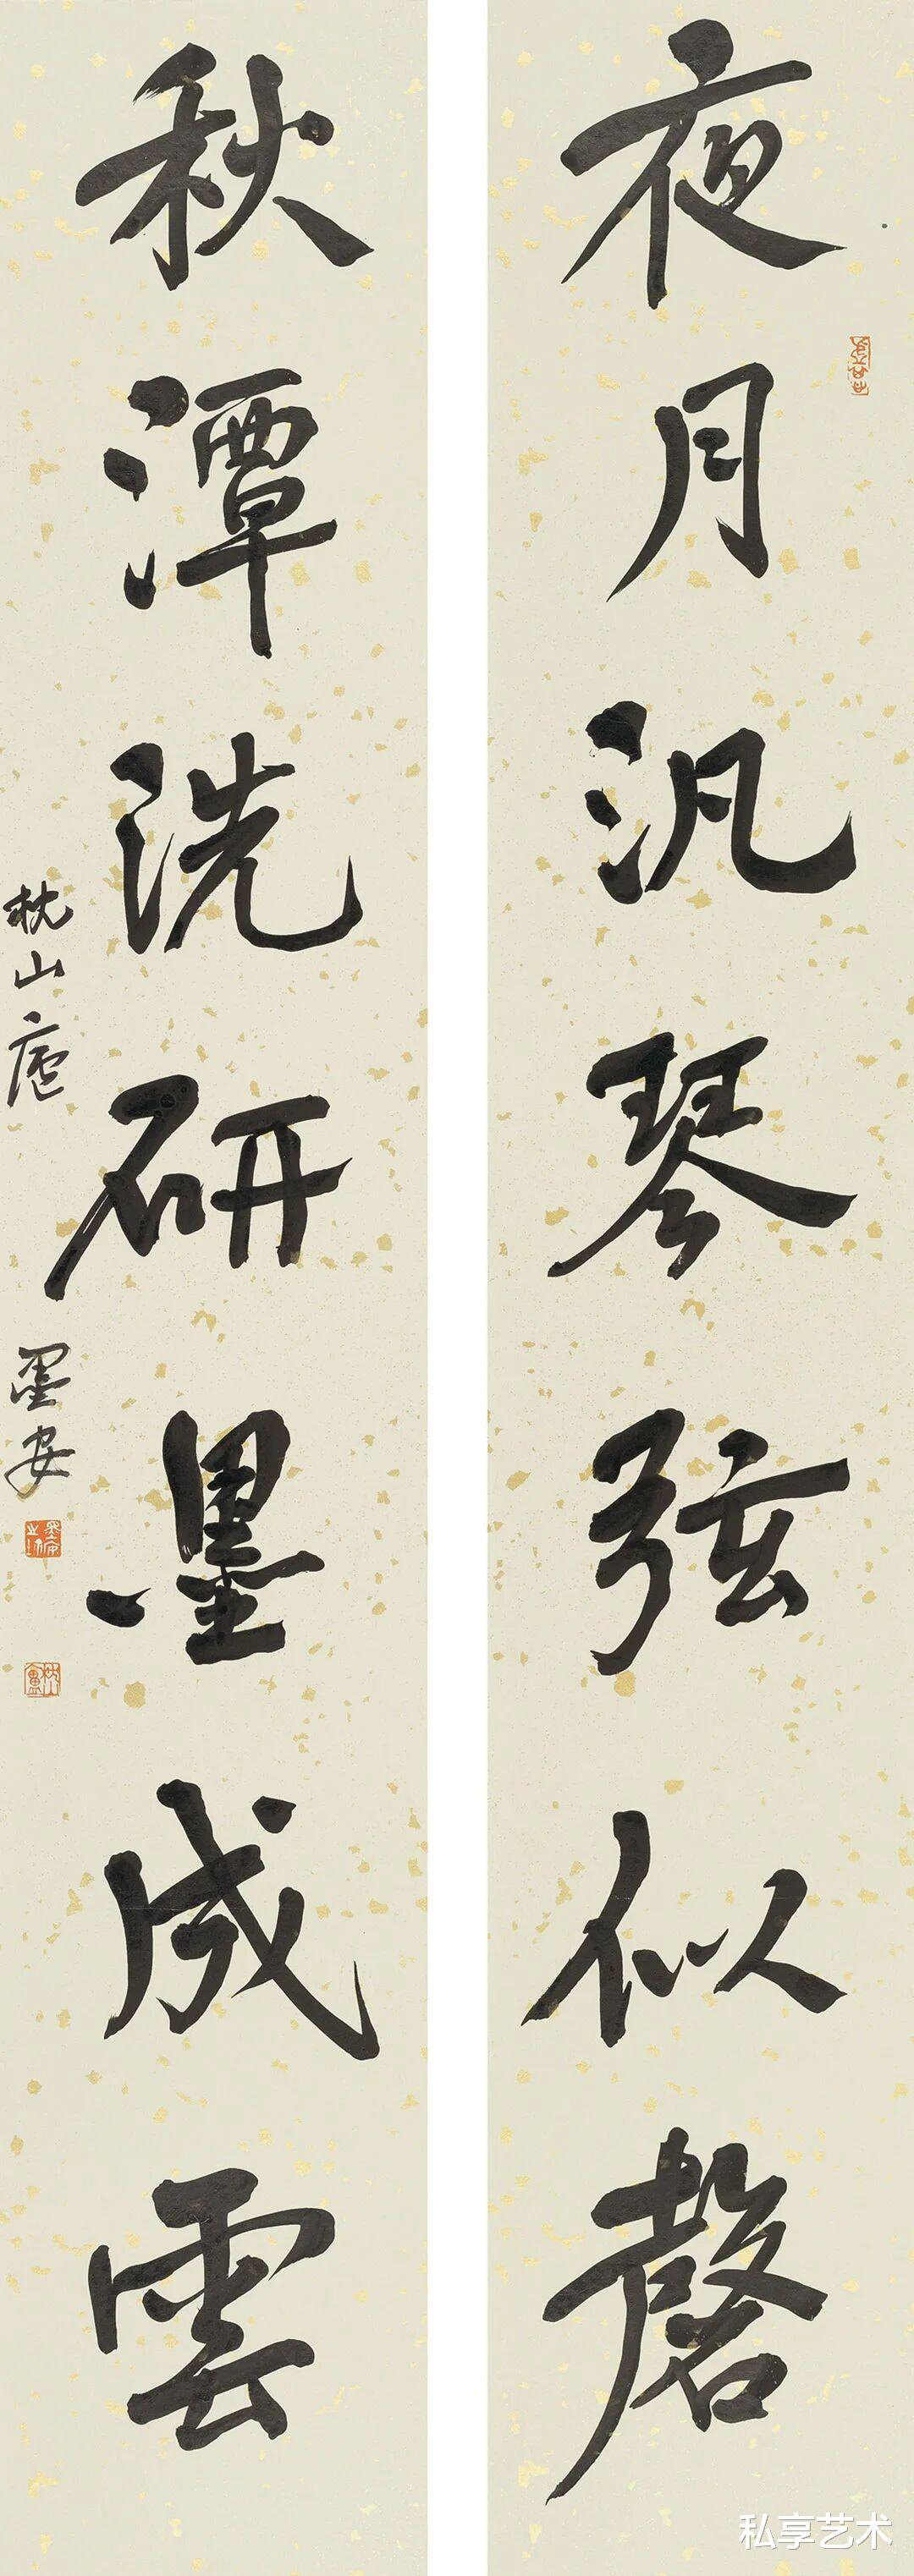 夜月汎琴弦似磬
秋潭洗研墨成雲
枕山廬
墨安
私享艺术